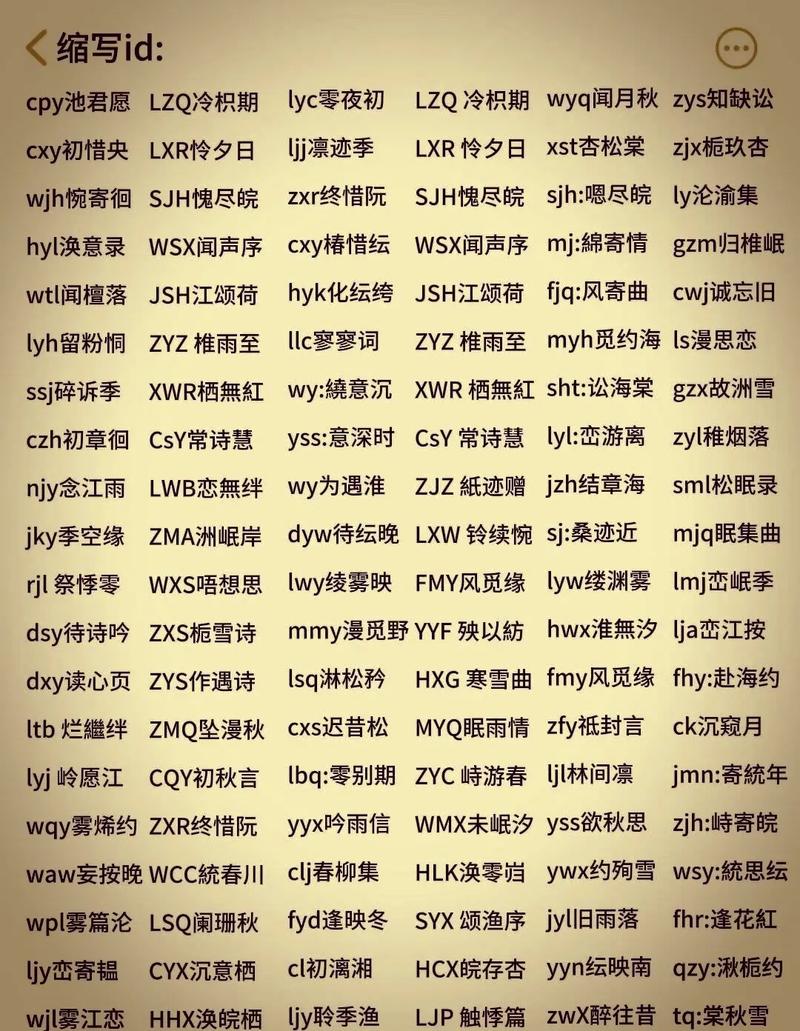 缩写id:
cpy池君愿 LZQ冷枳期 lyc零夜初 LZQ 冷枳期 wyq闻月秋 zys知缺讼
cxy初惜央 LXR怜夕日 ljj凛迹季 LXR 怜夕日 xst杏松棠 zjx栀玖杏
wjh惋寄徊 SJH愧尽皖 zxr终惜阮 SJH愧尽皖 sjh:嗯尽皖 ly沦渝集
hyl涣意录 WSX闻声序 cxy椿惜纭 WSX闻声序 mj:綿寄情 gzm归椎岷
wtl闻檀落 JSH江颂荷 hyk化纭绔 JSH江颂荷 fjq:风寄曲 cwj诚忘旧
lyh留粉恫 ZYZ 椎雨至 llc寥寥词 ZYZ 椎雨至 myh觅约海 ls漫思恋
ssj碎诉季 XWR栖無紅 wy:繞意沉 XWR 栖無紅 sht:讼海棠 gzx故洲雪
czh初章徊 CsY常诗慧 yss:意深时 CsY 常诗慧 lyl:峦游离 zyl稚烟落
njy念江雨 LWB恋無绊 wy为遇淮 ZJZ 紙迹赠 jzh结章海 sml松眠录
jky季空缘 ZMA洲岷岸 dyw待纭晚 LXW 铃续惋 sj:桑迹近 mjq眠集曲
rjl 祭悸零 WXS唔想思 lwy绫雾映 FMY风觅缘 lyw缕渊雾 lmj峦岷季
dsy待诗吟 ZXS栀雪诗 mmy漫觅野 YYF 殃以紡 hwx淮無汐 lja峦江按
dxy读心页 ZYS作遇诗 lsq淋松矜 HXG 寒雪曲 fmy风觅缘 fhy:赴海约
ltb 烂繼绊 ZMQ坠漫秋 cxs迟昔松 MYQ眠雨情 zfy祗封言 ck沉窥月
lyj 岭愿江 CQY初秋言 lbq:零别期 ZYC 峙游春 ljl林间凛 jmn:寄統年
wqy雾烯约 ZXR终惜阮 yyx吟雨信 WMX未岷汐 yss欲秋思 zjh:峙寄皖
waw妄按晚 WCC統春川 clj春柳集 HLK涣零岿 ywx约殉雪 wsy:統思纭
wpl雾篇沦 LSQ阑珊秋 fyd逢映冬 SYX 颂渔序 jyl旧雨落 fhr:逢花紅
ljy峦寄韫 CYX沉意栖 cl初漓湘 HCX皖存杏 yyn纭映南 qzy:湫栀约
wjl雾江恋 HHX涣皖栖 ljy聆季渔 LJP 触悸篇 zwX醉往昔 tq:棠秋雪